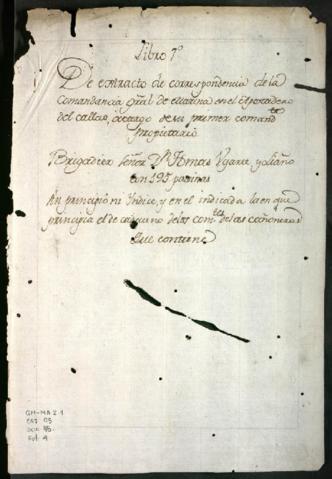 Libro 7º
De extracto de correspondencia de la
Comandancia gral de marina en el Apostadero
del callao, a cargo de su primer comand.te
Propietario
Brigadier Señor Dn Tomas Ugarte y Liaño
con 195 paginas
principio el de cada uno de los com.tes de las cañoneras
Que contiene
GM-MA 2.1
CAJ 03
DOC 85
Fol. 1